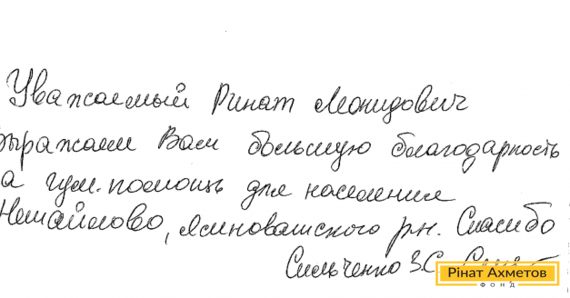 Уважаемый Ринат Леонидович
ыражаем Вам большую благодарность
а гум. помощь для населения
Нетайлово, Ясиноватского р-н. Спасибо
Сильченко З.С.
Рінат Ахметов
ФОНД